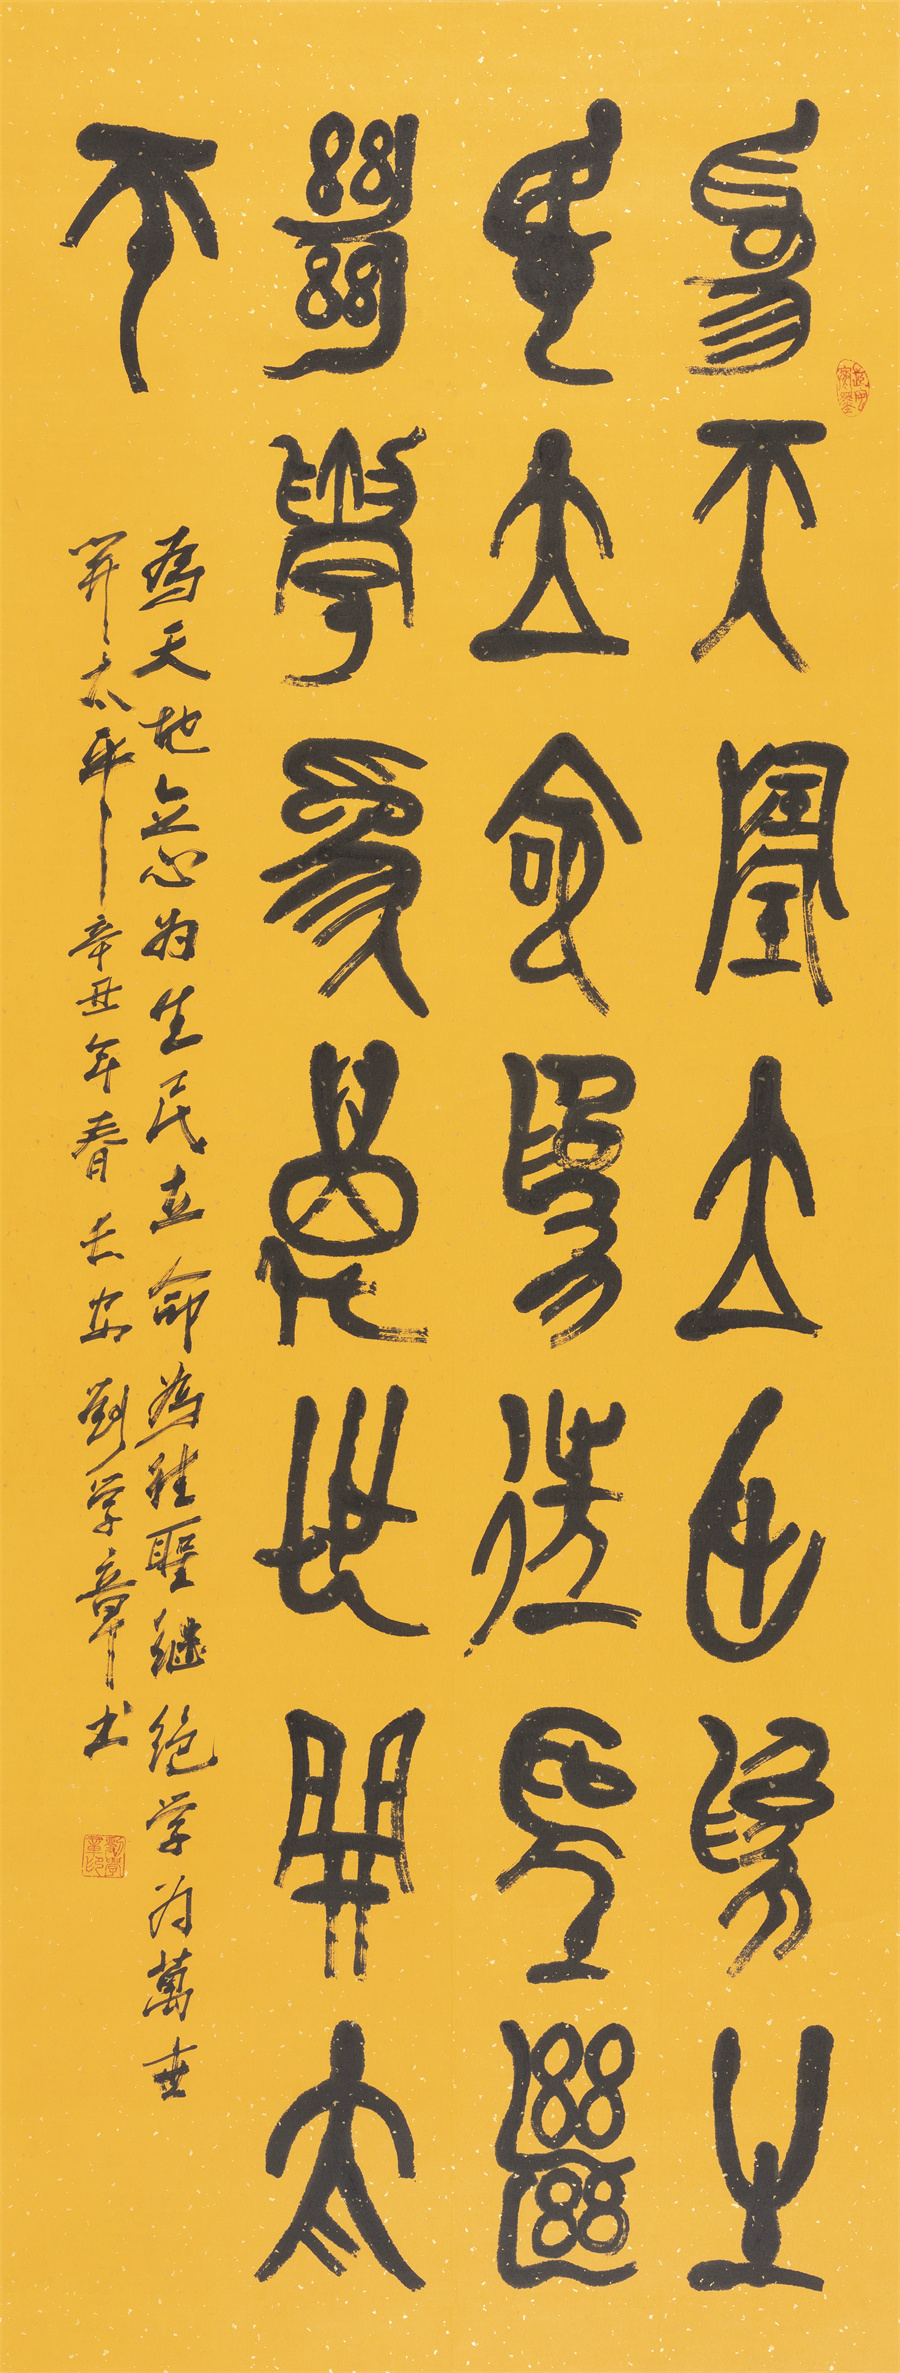 為天地立心為生
民立命為往聖繼
絕學為萬世開太
平
為天地立心为生民立命為往聖继绝学为萬世
開太平 辛丑年春 长安 劉学章书
劉學章印